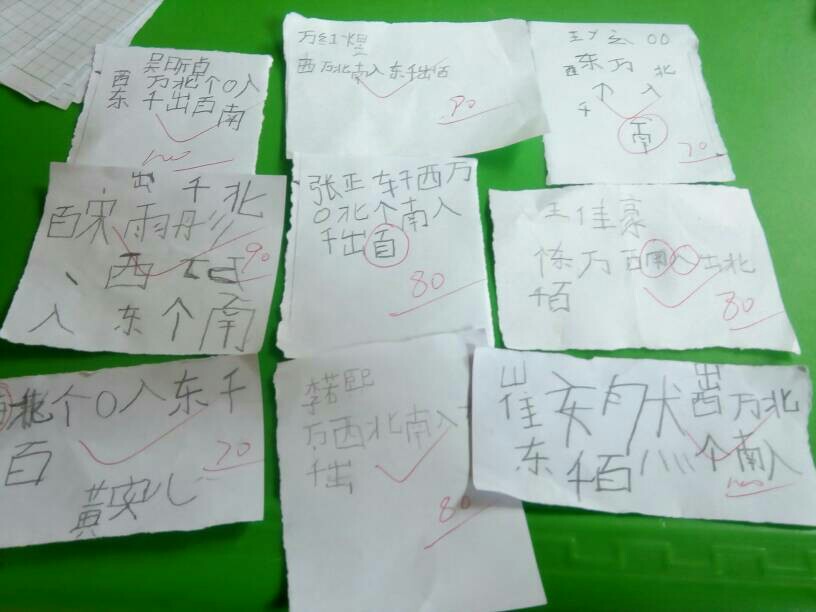 吴昕卓
西万北个0入
东千出百南
100
万红煜
西万北南入东千出百
90
00
西东万北
个入
千
南
70
出千北
百宋雨彤
90
西
入东个南
张正东千西万
0北个南入
千出百
80
王佳豪
东万西南入出北
千百
80
北个0入东千
百
70
黄安儿
李若熙
万西北南入
千出
80
崔安然出
西万北
东千百个南入
100